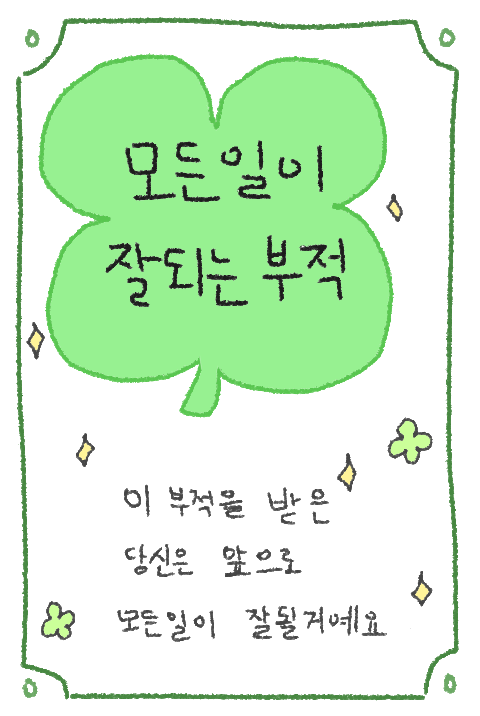 모든일이
잘되는 부적
이 부적을 받은
당신은 앞으로
모든일이 잘될거예요